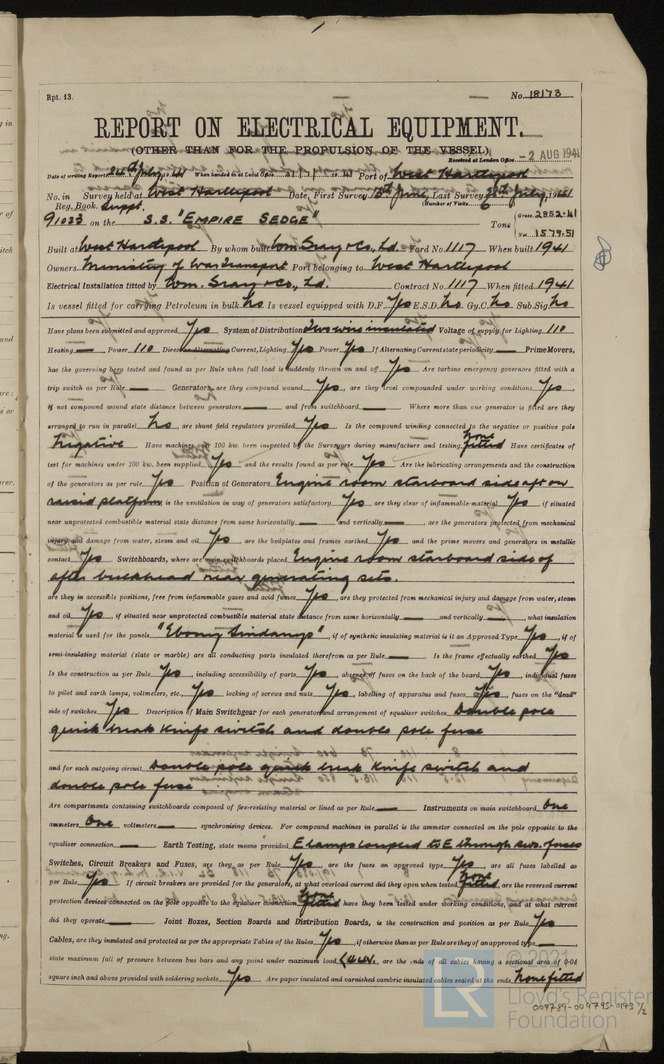 Rpt. 13.
No. 18173
REPORT ON ELECTRICAL EQUIPMENT.
(OTHER THAN FOR THE PROPULSION OF THE VESSEL)
Received at London Office 2 AUG 1941
Date of writing Report 24th July, 41 When handed in at Local Office 19 41 Port of West Hartlepool
No. in Survey held at West Hartlepool Date, First Survey 13th June, Last Survey July, 1941
Reg. Book. Suppl. (Number of Visits
91033 on the S.S. "EMPIRE SEDGE" Tons Gross 2852.41
Net 1579.51
Built at West Hartlepool By whom built Wm. Gray & Co., Ld. Yard No. 1117 When built 1941
Owners Ministry of War Transport Port belonging to West Hartlepool
Electrical Installation fitted by Wm. Gray & Co., Ld. Contract No. 1117 When fitted 1941
Is vessel fitted for carrying Petroleum in bulk No Is vessel equipped with D.F. Yes E.S.D. No Gy.C. No Sub.Sig. No
Have plans been submitted and approved Yes System of Distribution Two wire insulated Voltage of supply for Lighting 110
Heating — Power 110 Direct or Alternating Current, Lighting Yes Power Yes If Alternating Current state periodicity — Prime Movers,
has the governing been tested and found as per Rule when full load is suddenly thrown on and off Yes Are turbine emergency governors fitted with a
trip switch as per Rule — Generators, are they compound wound Yes, are they level compounded under working conditions Yes,
if not compound wound state distance between generators — and from switchboard — Where more than one generator is fitted are they
arranged to run in parallel No, are shunt field regulators provided Yes Is the compound winding connected to the negative or positive pole
Negative Have machines over 100 kw. been inspected by the Surveyors during manufacture and testing None fitted Have certificates of
test for machines under 100 kw. been supplied Yes and the results found as per rule Yes Are the lubricating arrangements and the construction
of the generators as per rule Yes Position of Generators Engine room starboard side aft on
raised platform is the ventilation in way of generators satisfactory Yes are they clear of inflammable material Yes if situated
near unprotected combustible material state distance from same horizontally — and vertically — are the generators protected from mechanical
injury and damage from water, steam and oil Yes, are the bedplates and frames earthed Yes and the prime movers and generators in metallic
contact Yes Switchboards, where are main switchboards placed Engine room starboard side of
after bulkhead near generating sets.
are they in accessible positions, free from inflammable gases and acid fumes Yes, are they protected from mechanical injury and damage from water, steam
and oil Yes, if situated near unprotected combustible material state distance from same horizontally — and vertically —, what insulation
material is used for the panels "Ebony Sindanyo", if of synthetic insulating material is it an Approved Type Yes, if of
semi-insulating material (slate or marble) are all conducting parts insulated therefrom as per Rule — Is the frame effectually earthed Yes
Is the construction as per Rule Yes, including accessibility of parts Yes, absence of fuses on the back of the board Yes, individual fuses
to pilot and earth lamps, voltmeters, etc., Yes locking of screws and nuts Yes, labelling of apparatus and fuses Yes, fuses on the "dead"
side of switches Yes Description of Main Switchgear for each generator and arrangement of equaliser switches Double pole
quick break knife switch and double pole fuse
and for each outgoing circuit Double pole quick break knife switch and
double pole fuse
Are compartments containing switchboards composed of fire-resisting material or lined as per Rule — Instruments on main switchboard One
ammeters One voltmeters — synchronising devices. For compound machines in parallel is the ammeter connected on the pole opposite to the
equaliser connection — Earth Testing, state means provided E lamps coupled to E through sws. fuses
Switches, Circuit Breakers and Fuses, are they as per Rule Yes are the fuses an approved type Yes are all fuses labelled as
per Rule Yes If circuit breakers are provided for the generators, at what overload current did they open when tested None fitted are the reversed current
protection devices connected on the pole opposite to the equaliser connection None fitted have they been tested under working conditions, and at what current
did they operate — Joint Boxes, Section Boards and Distribution Boards, is the construction and position as per Rule Yes
Cables, are they insulated and protected as per the appropriate Tables of the Rules Yes, if otherwise than as per Rule are they of an approved type —,
state maximum fall of pressure between bus bars and any point under maximum load, are the ends of all cables having a sectional area of 0.04
square inch and above provided with soldering sockets Yes Are paper insulated and varnished cambric insulated cables sealed at the ends None fitted
© 2021
LR
Lloyd's Register
Foundation
009789-009795-0193 1/2